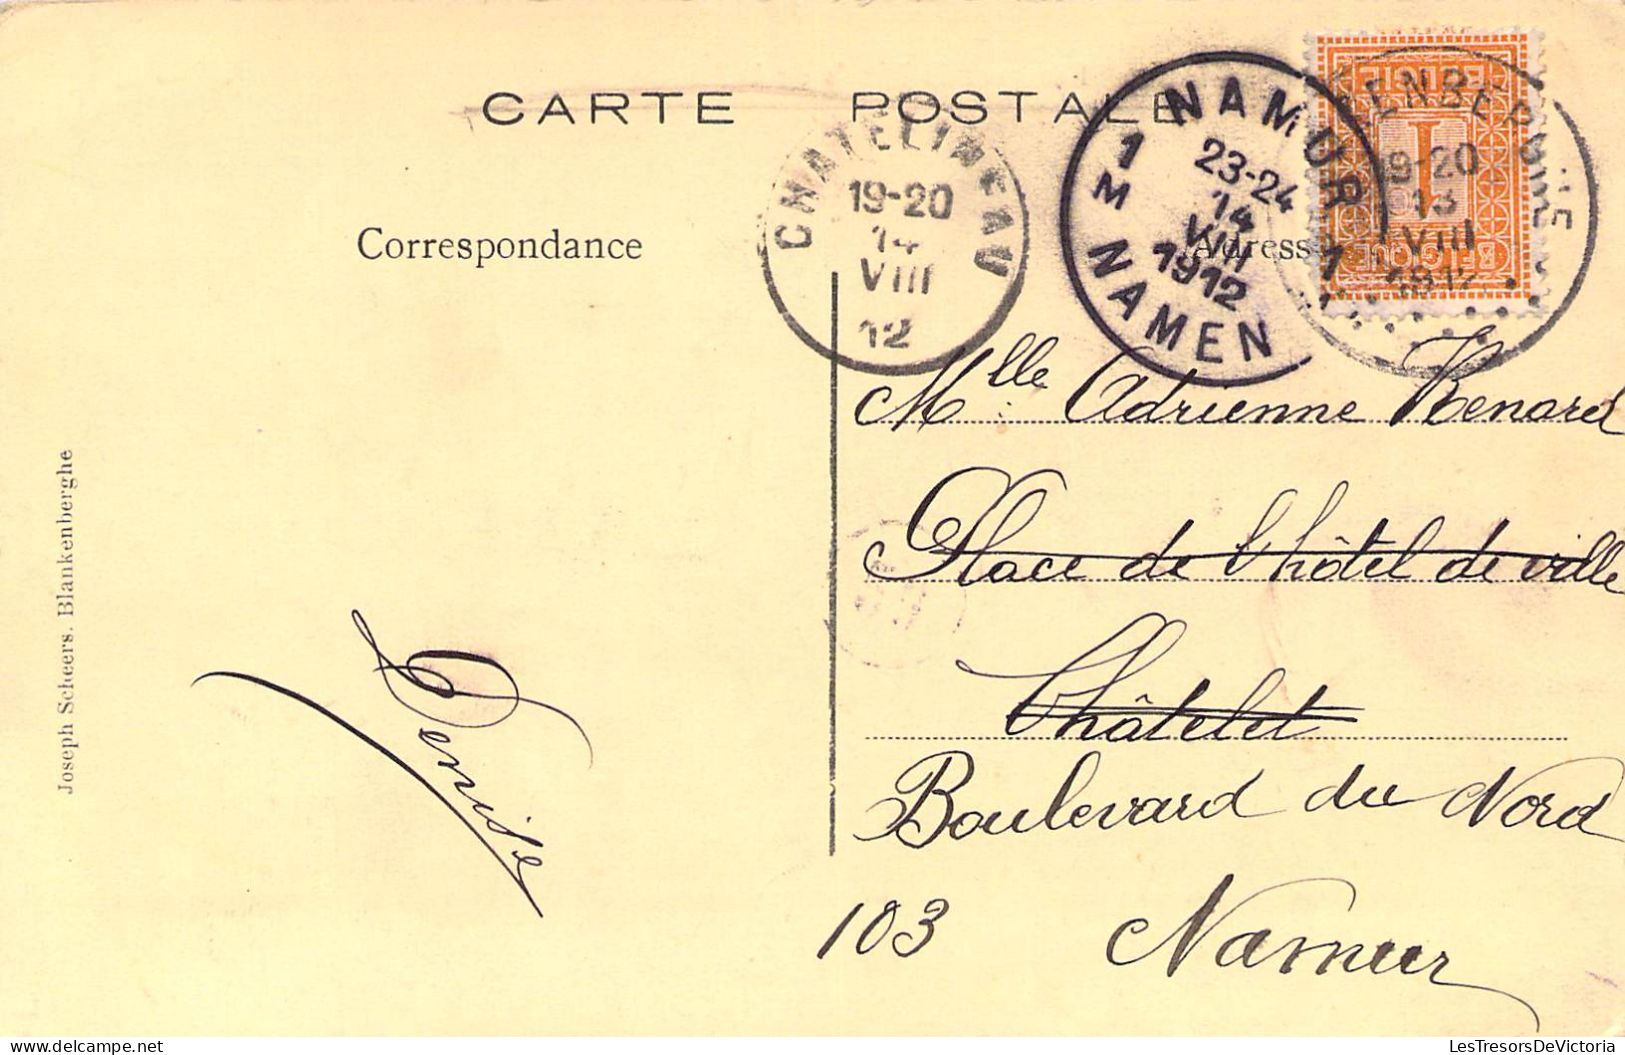 CARTE POSTALE
Correspondance
Adresse
CHATELINEAU
19-20
14
VIII
12
NAMUR
1 M
23-24
14
VIII
1912
1
NAMEN
19-20
13
VIII
1912
BELGIË
1
BELGIQUE
Mlle Adrienne Renard
Place de l'hôtel de ville
Châtelet
Boulevard du Nord
103 Namur
Denise
Joseph Scheers. Blankenberghe
LesTresorsDeVictoria.com